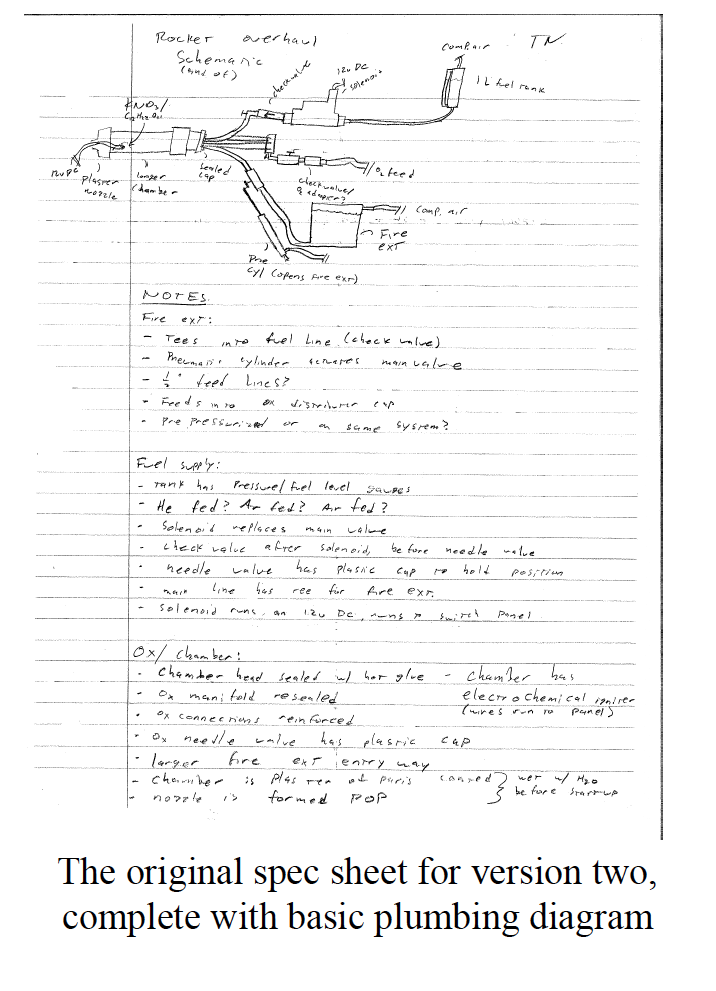 Rocket overhaul
Schematic
(kind of)
TN
Comp. air
12v DC
solenoid
check valve
1L fuel tank
KNO3/
C12H22O11
sealed
cap
O2 feed
12v DC
Plaster
nozzle
longer
chamber
check valve/
Comp. air
Fire
ext
Pne
cyl (opens fire ext)
NOTES
Fire ext:
- Tees into fuel line (check valve)
- Pneumatic cylinder actuates main valve
- 1/2" feed lines?
- Feeds into ox distributer cap
- Pre pressurized or on same system?
Fuel supply:
- tank has pressure/fuel level gauges
- He fed? Ar fed? Air fed?
- Solenoid replaces main valve
- check valve after solenoid, before needle valve
- needle valve has plastic cap to hold position
- main line has tee for fire ext.
- solenoid runs on 12v DC, runs to switch panel
Ox/ Chamber:
- Chamber head sealed w/ hot glue - Chamber has
electrochemical igniter
(wires run to panel)
- Ox manifold resealed
- ox connections reinforced
- Ox needle valve has plastic cap
- larger fire ext entry way
- Chamber is plaster of paris coated } wet w/ H2O
before startup
- nozzle is formed POP
The original spec sheet for version two,
complete with basic plumbing diagram